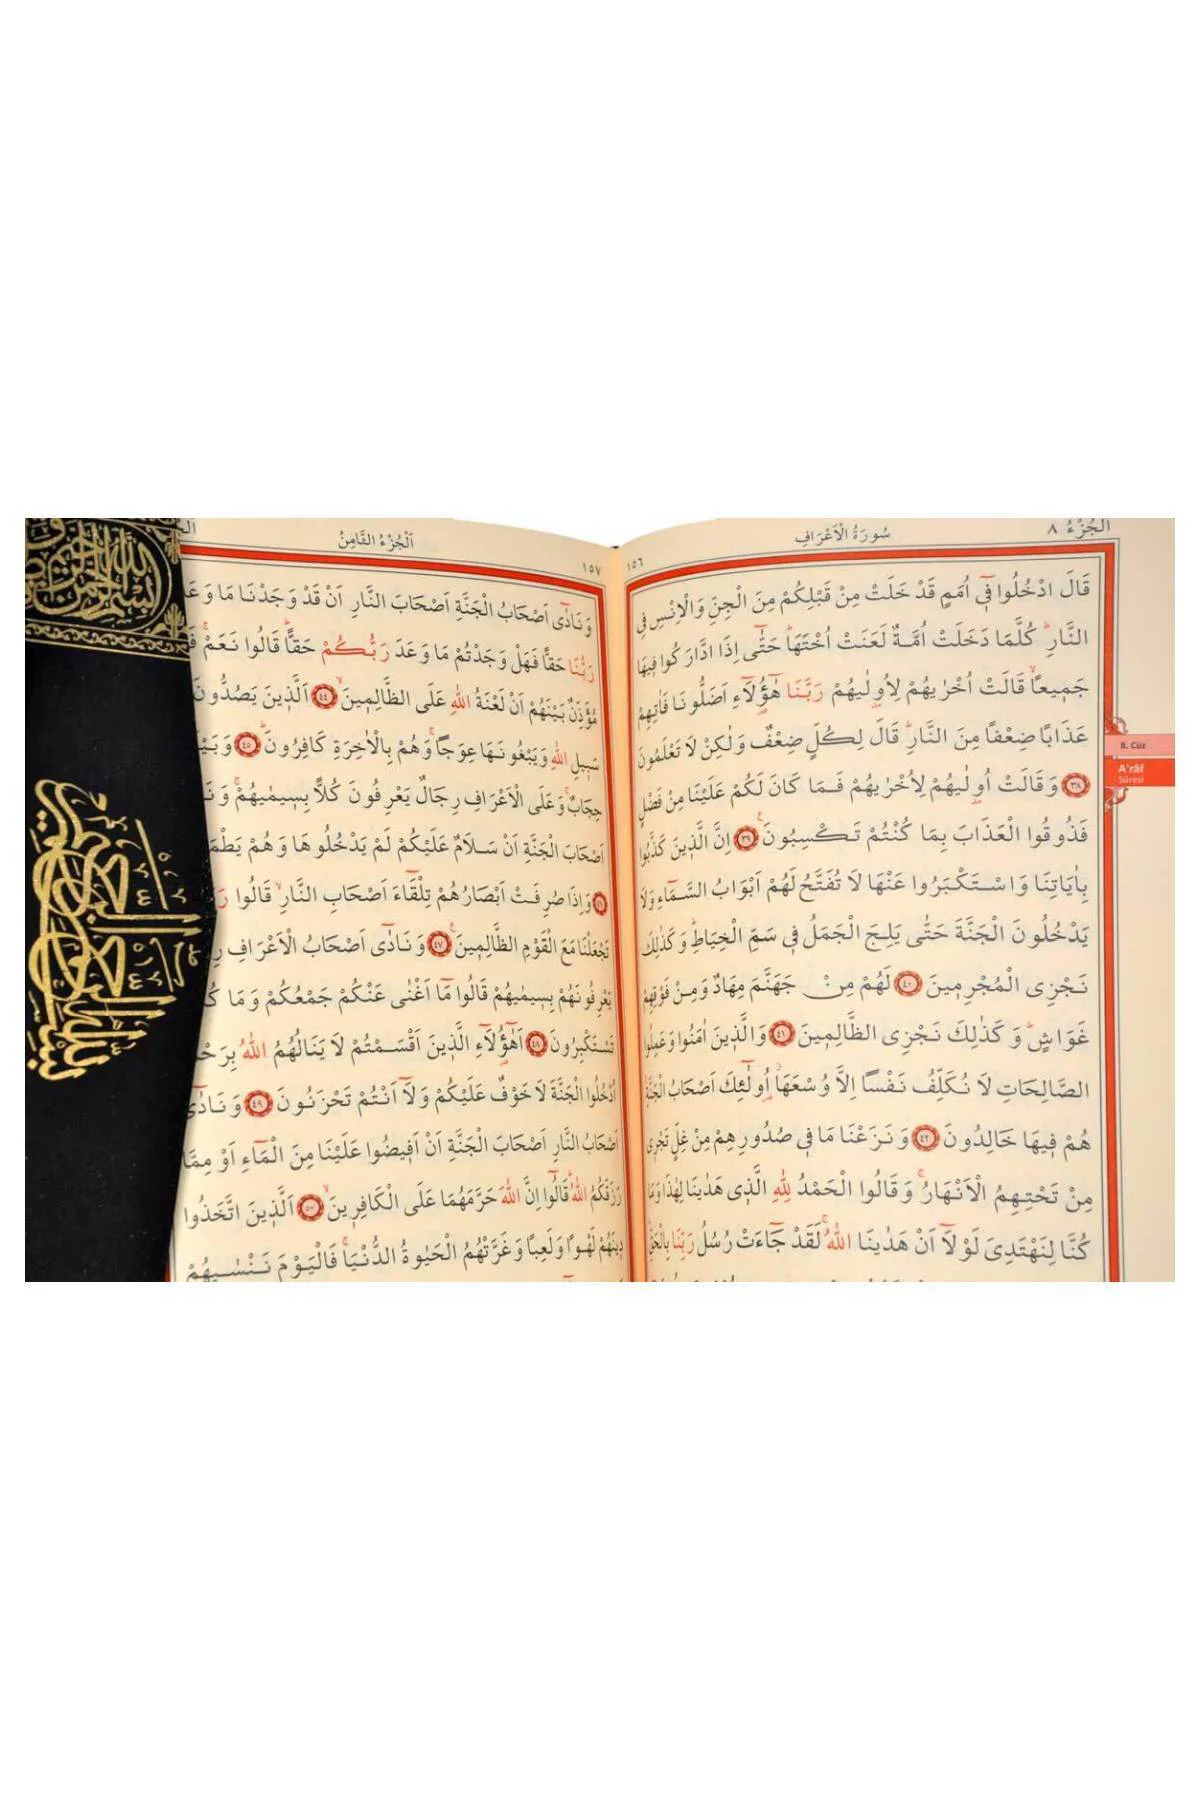 الجزء ٨
سورة الاعراف
١٥٦
قَالَ ادْخُلُوا فٓي اُمَمٍ قَدْ خَلَتْ مِنْ قَبْلِكُمْ مِنَ الْجِنِّ وَالْاِنْسِ فِي
النَّارِۜ كُلَّمَا دَخَلَتْ اُمَّةٌ لَعَنَتْ اُخْتَهَاۜ حَتّٰٓى اِذَا ادَّارَكُوا فٖيهَا
جَمٖيعاًۙ قَالَتْ اُخْرٰيهُمْ لِاُو۫لٰيهُمْ رَبَّنَا هٰٓؤُ۬لَٓاءِ اَضَلُّونَا فَاٰتِهِمْ
عَذَابًا ضِعْفًا مِنَ النَّارِۜ قَالَ لِكُلٍّ ضِعْفٌ وَلٰكِنْ لَا تَعْلَمُونَ
٣٨ وَقَالَتْ اُو۫لٰيهُمْ لِاُخْرٰيهُمْ فَمَا كَانَ لَكُمْ عَلَيْنَا مِنْ فَضْلٍ
فَذُوقُوا الْعَذَابَ بِمَا كُنْتُمْ تَكْسِبُونَ۟ ٣٩ اِنَّ الَّذٖينَ كَذَّبُوا
بِاٰيَاتِنَا وَاسْتَكْبَرُوا عَنْهَا لَا تُفَتَّحُ لَهُمْ اَبْوَابُ السَّمَٓاءِ وَلَا
يَدْخُلُونَ الْجَنَّةَ حَتّٰى يَلِجَ الْجَمَلُ فٖي سَمِّ الْخِيَاطِۜ وَكَذٰلِكَ
نَجْزِي الْمُجْرِمٖينَ ٤٠ لَهُمْ مِنْ جَهَنَّمَ مِهَادٌ وَمِنْ فَوْقِهِمْ
غَوَاشٍۜ وَكَذٰلِكَ نَجْزِي الظَّالِمٖينَ ٤١ وَالَّذٖينَ اٰمَنُوا وَعَمِلُوا
الصَّالِحَاتِ لَا نُكَلِّفُ نَفْسًا اِلَّا وُسْعَهَاۘ اُو۬لٰٓئِكَ اَصْحَابُ الْجَنَّةِۚ
هُمْ فٖيهَا خَالِدُونَ ٤٢ وَنَزَعْنَا مَا فٖي صُدُورِهِمْ مِنْ غِلٍّ تَجْرٖي
مِنْ تَحْتِهِمُ الْاَنْهَارُۚ وَقَالُوا الْحَمْدُ لِلّٰهِ الَّذٖي هَدٰينَا لِهٰذَا وَمَا
كُنَّا لِنَهْتَدِيَ لَوْلَٓا اَنْ هَدٰينَا اللّٰهُۚ لَقَدْ جَٓاءَتْ رُسُلُ رَبِّنَا بِالْحَقِّۜ
8. Cüz
A'râf
Sûresi
اَلْجُزْءُ الثَّامِنُ
١٥٧
وَنَادٰٓى اَصْحَابُ الْجَنَّةِ اَصْحَابَ النَّارِ اَنْ قَدْ وَجَدْنَا مَا وَعَدَنَا
رَبُّنَا حَقًّا فَهَلْ وَجَدْتُمْ مَا وَعَدَ رَبُّكُمْ حَقًّاۜ قَالُوا نَعَمْۚ
مُؤَذِّنٌ بَيْنَهُمْ اَنْ لَعْنَةُ اللّٰهِ عَلَى الظَّالِمٖينَۙ ٤٤ اَلَّذٖينَ يَصُدُّونَ
سَبٖيلِ اللّٰهِ وَيَبْغُونَهَا عِوَجًاۚ وَهُمْ بِالْاٰخِرَةِ كَافِرُونَۜ ٤٥
حِجَابٌۚ وَعَلَى الْاَعْرَافِ رِجَالٌ يَعْرِفُونَ كُلًّا بِسٖيمٰيهُمْۚ
اَصْحَابَ الْجَنَّةِ اَنْ سَلَامٌ عَلَيْكُمْ لَمْ يَدْخُلُوهَا وَهُمْ
٤٦ وَاِذَا صُرِفَتْ اَبْصَارُهُمْ تِلْقَٓاءَ اَصْحَابِ النَّارِۙ قَالُوا
تَجْعَلْنَا مَعَ الْقَوْمِ الظَّالِمٖينَ۟ ٤٧ وَنَادٰٓى اَصْحَابُ الْاَعْرَافِ
يَعْرِفُونَهُمْ بِسٖيمٰيهُمْ قَالُوا مَٓا اَغْنٰى عَنْكُمْ جَمْعُكُمْ وَمَا
تَسْتَكْبِرُونَ ٤٨ اَهٰٓؤُ۬لَٓاءِ الَّذٖينَ اَقْسَمْتُمْ لَا يَنَالُهُمُ اللّٰهُ
اُدْخُلُوا الْجَنَّةَ لَا خَوْفٌ عَلَيْكُمْ وَلَٓا اَنْتُمْ تَحْزَنُونَ ٤٩ وَنَادٰٓى
اَصْحَابُ النَّارِ اَصْحَابَ الْجَنَّةِ اَنْ اَفٖيضُوا عَلَيْنَا مِنَ الْمَٓاءِ اَوْ مِمَّا
رَزَقَكُمُ اللّٰهُۜ قَالُٓوا اِنَّ اللّٰهَ حَرَّمَهُمَا عَلَى الْكَافِرٖينَۙ ٥٠ اَلَّذٖينَ اتَّخَذُوا
دٖينَهُمْ لَهْوًا وَلَعِبًا وَغَرَّتْهُمُ الْحَيٰوةُ الدُّنْيَاۚ فَالْيَوْمَ نَنْسٰيهُمْ